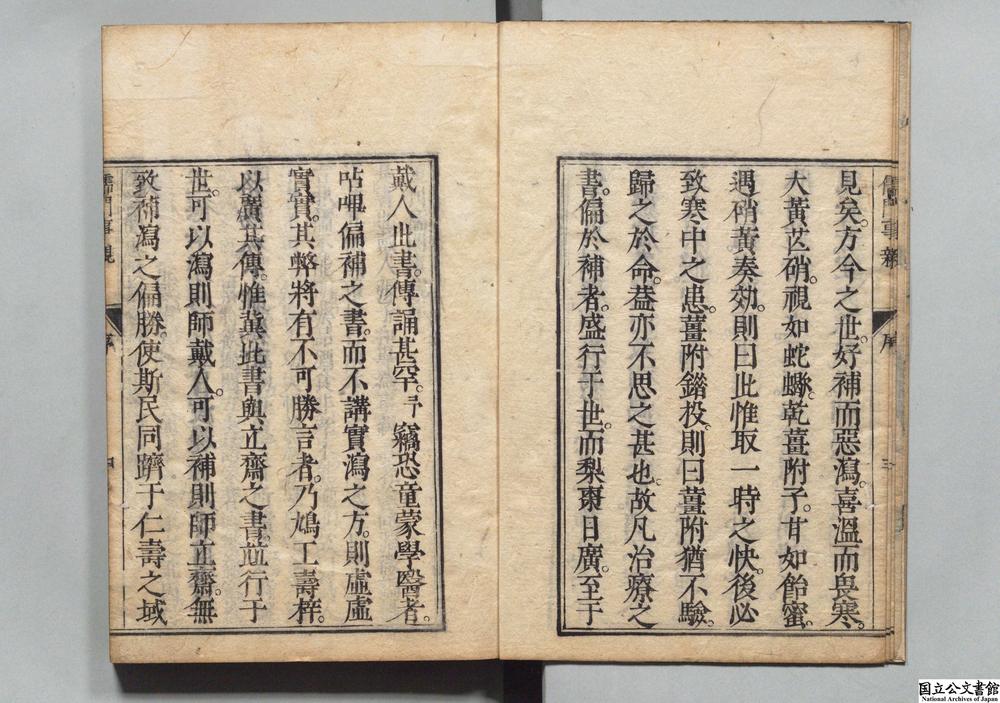 見矣。方今之世。好補而惡瀉。喜溫而畏寒。
大黃芒硝。視如蛇蠍。乾薑附子。甘如飴蜜。
遇硝黃奏効。則曰此惟取一時之快。後必
致寒中之患。薑附錯投。則曰薑附猶不驗。
歸之於命。葢亦不思之甚也。故凡治療之
書。偏於補者。盛行于世。而梨棗日廣。至于
儒門事親
序
三
戴人此書。傳誦甚罕。予竊恐童蒙學醫者。
呫嗶偏補之書。而不講實瀉之方。則虛虛
實實。其弊將有不可勝言者。乃鳩工壽梓。
以廣其傳。惟冀此書與立齋之書。並行于
世。可以瀉則師戴人。可以補則師立齋。無
致補瀉之偏勝使斯民同躋于仁壽之域
儒門事親
序
四
国立公文書館
National Archives of Japan